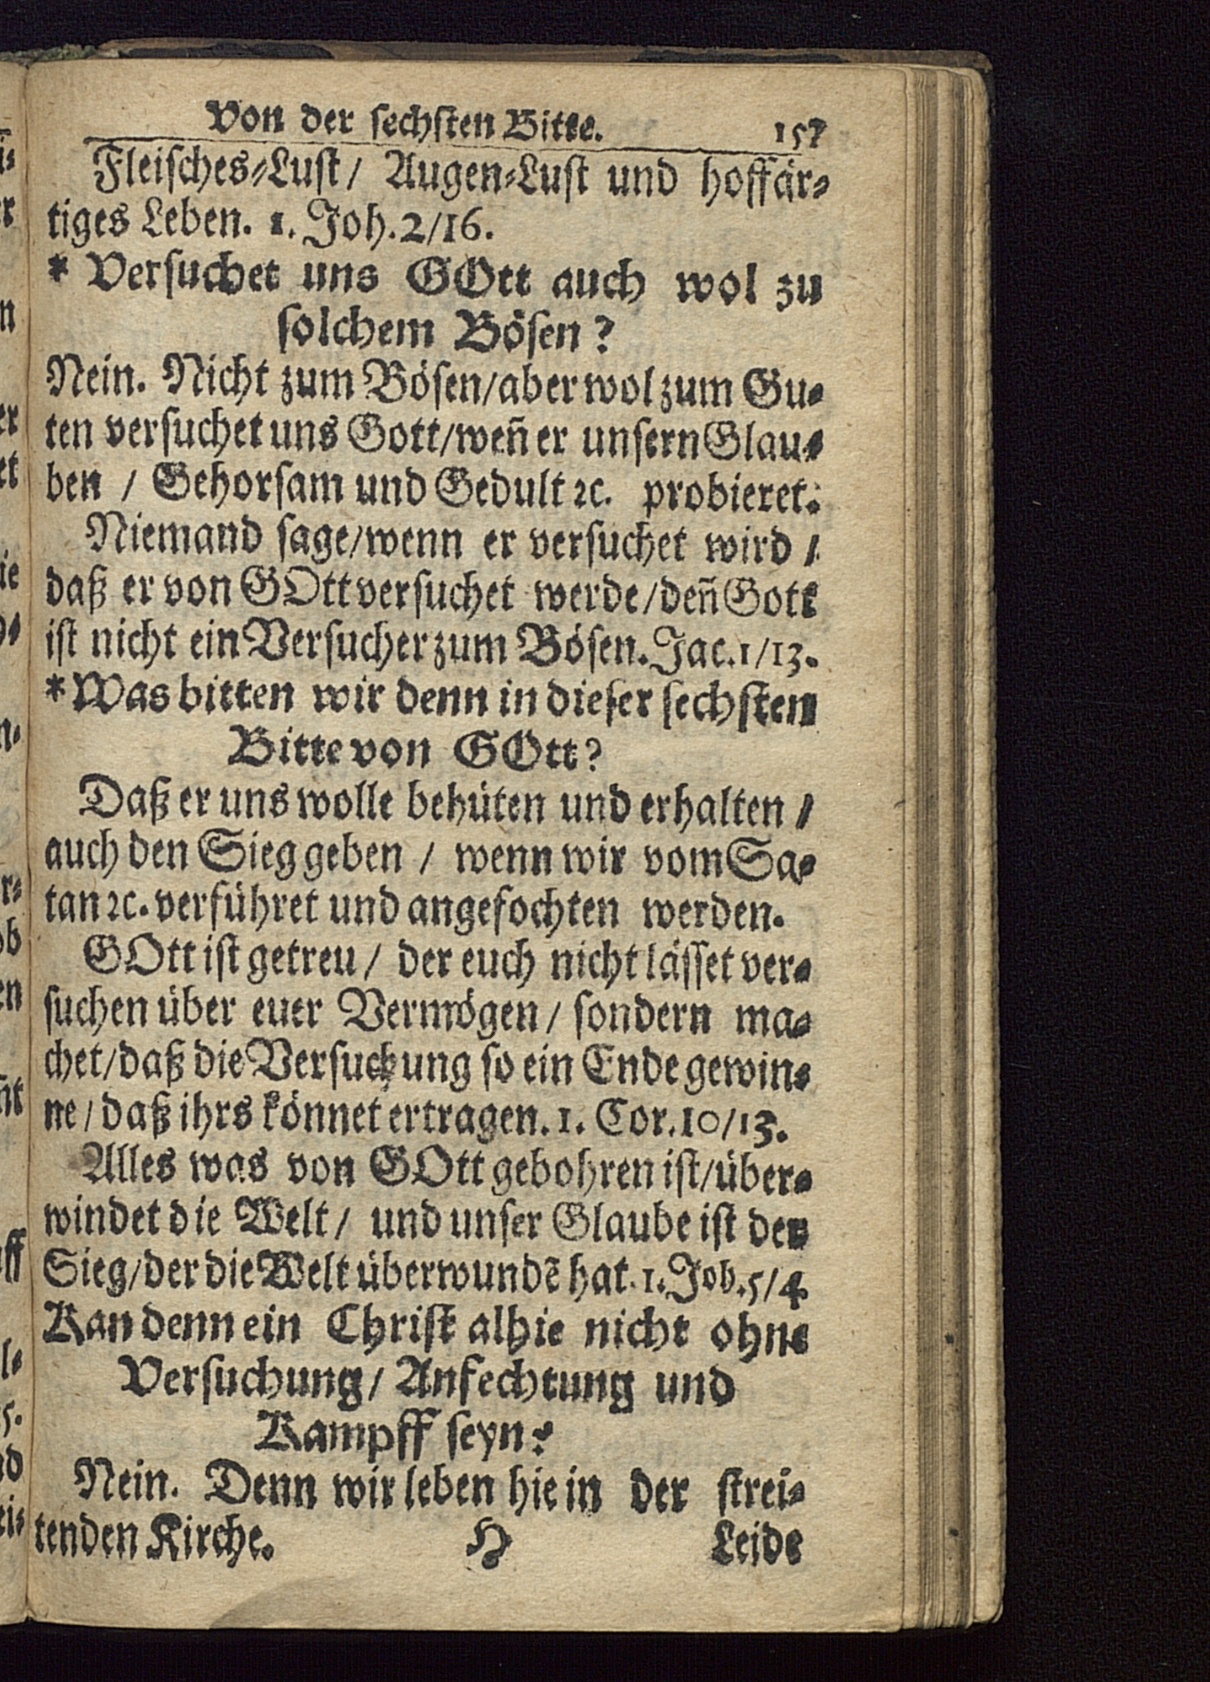 Von der sechsten Bitte. 157
Fleisches-Lust/ Augen-Lust und hoffär-
tiges Leben. 1. Joh. 2/16.
* Versuchet uns GOtt auch wol zu
solchem Bösen?
Nein. Nicht zum Bösen/aber wol zum Gu-
ten versuchet uns Gott/weñ er unsern Glau-
ben / Gehorsam und Gedult ꝛc. probieret.
Niemand sage/wenn er versuchet wird /
daß er von GOtt versuchet werde/deñ Gott
ist nicht ein Versucher zum Bösen. Jac. 1/13.
* Was bitten wir denn in dieser sechsten
Bitte von GOtt?
Daß er uns wolle behüten und erhalten /
auch den Sieg geben / wenn wir vom Sa-
tan ꝛc. verführet und angefochten werden.
GOtt ist getreu / der euch nicht lässet ver-
suchen über euer Vermögen / sondern ma-
chet/daß die Versuchung so ein Ende gewin-
ne / daß ihrs könnet ertragen. 1. Cor. 10/13.
Alles was von GOtt gebohren ist/über-
windet die Welt / und unser Glaube ist der
Sieg/der die Welt überwundẽ hat. 1. Joh. 5/4.
Kan denn ein Christ alhie nicht ohne
Versuchung/ Anfechtung und
Kampff seyn?
Nein. Denn wir leben hie in der strei-
tenden Kirche. H Leide